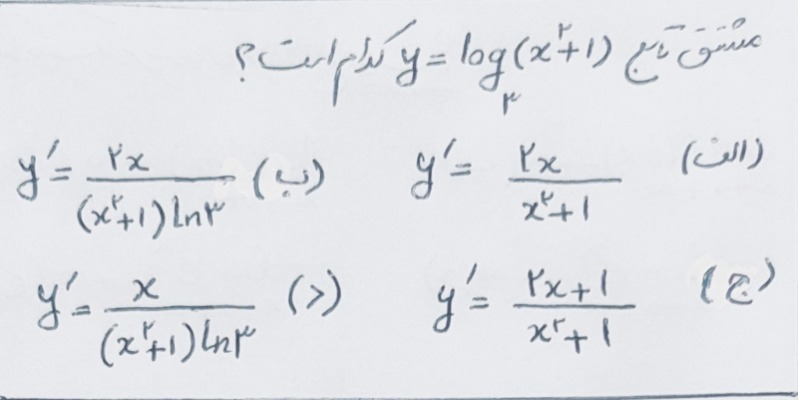 مشتق تابع y = log₃(x²+1) کدام است؟
الف) y′ = ۲x / (x²+1)    ب) y′ = ۲x / ((x²+1) ln۳)
ج) y′ = (۲x+1) / (x²+1)    د) y′ = x / ((x²+1) ln۳)